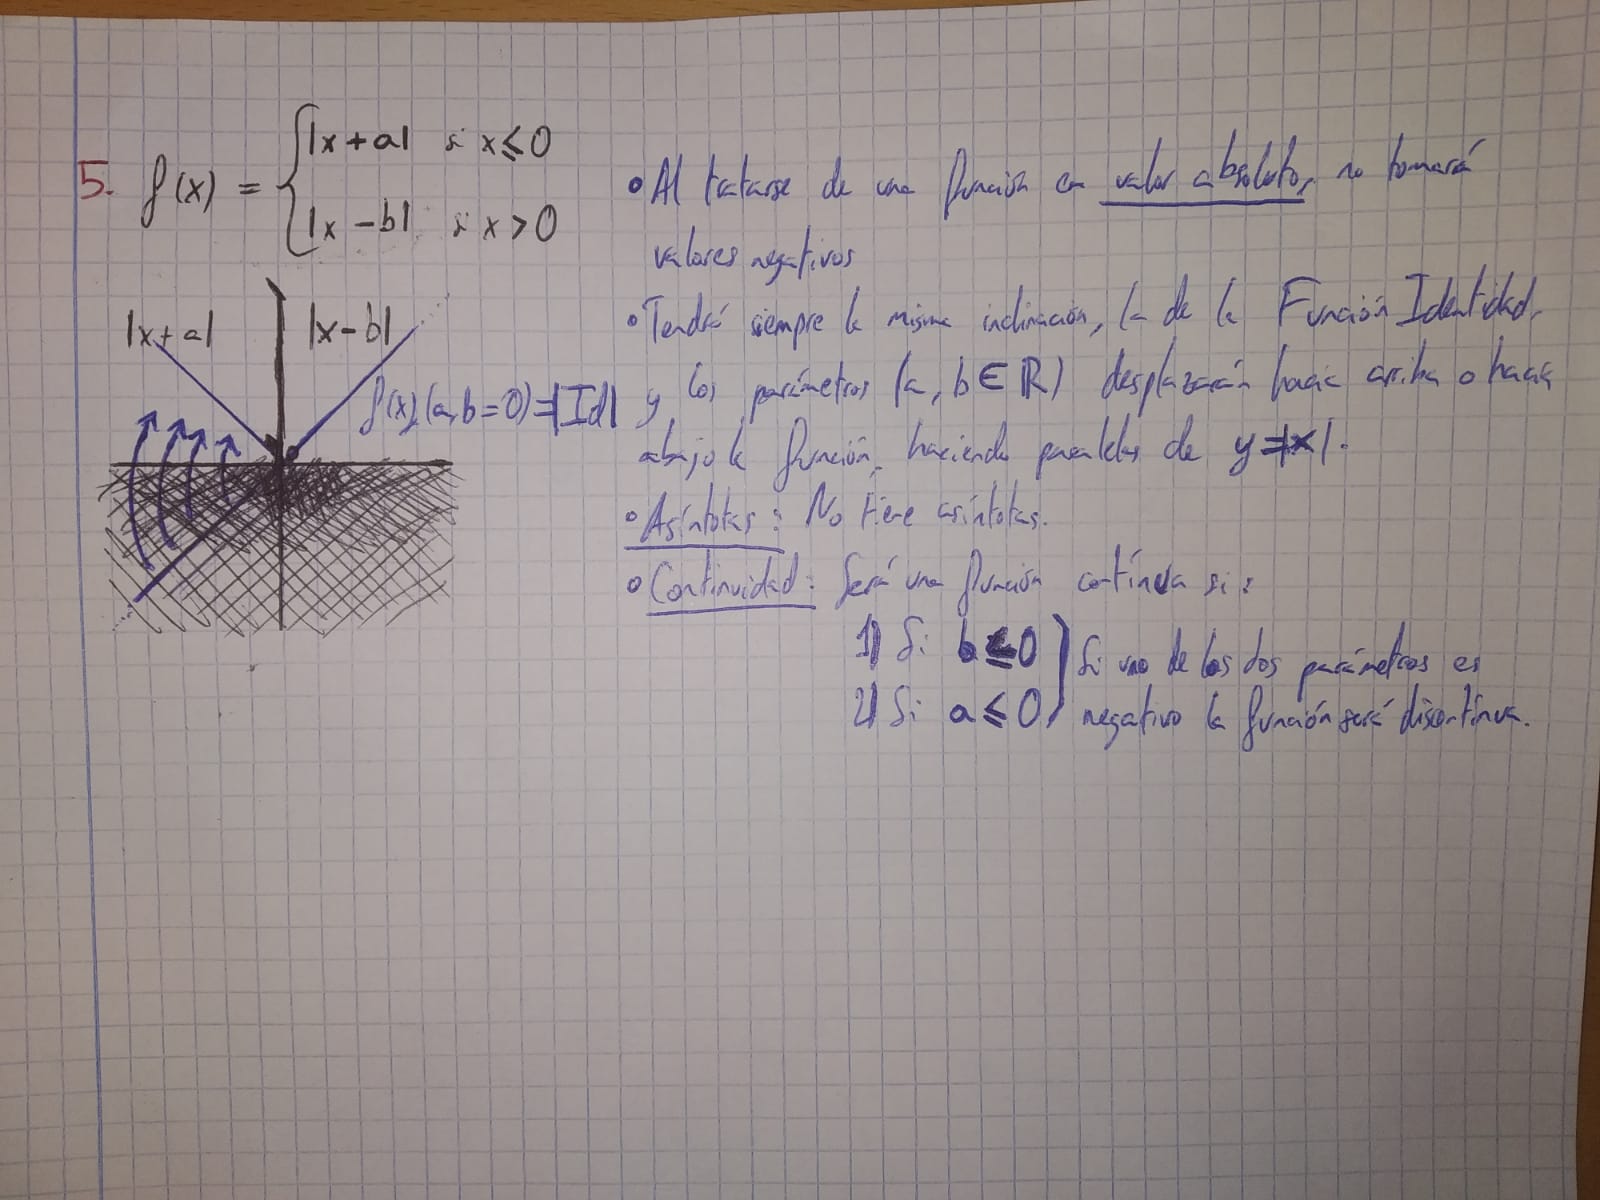 5. f(x) = { |x+a| si x≤0
|x-b| si x>0
|x+a| |x-b|
f(x), (a,b=0)=|Id|
• Al tratarse de una función en valor absoluto, no tomará
valores negativos
• Tendrá siempre la misma inclinación, la de la Función Identidad,
y los parámetros (a, b ∈ ℝ) desplazarán hacia arriba o hacia
abajo la función, haciendo paralelas de y=|x|.
• Asíntotas: No tiene asíntotas.
• Continuidad: Será una función contínua si:
1) Si b≤0
2) Si a≤0
} Si uno de los dos parámetros es
negativo la función será discontínua.